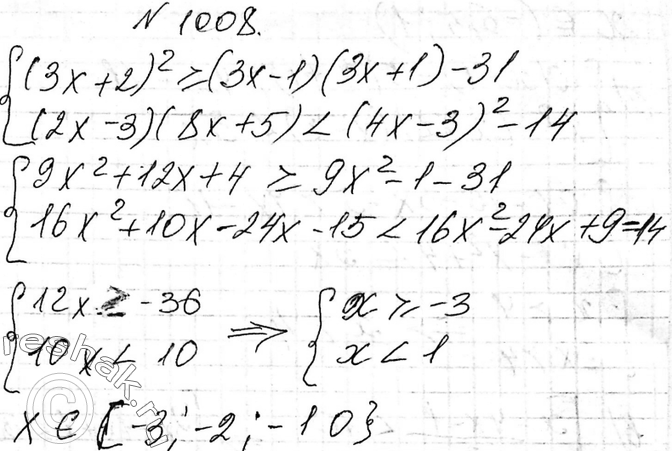 N 1008.
(3x+2)² ≥ (3x-1)(3x+1)-31
(2x-3)(8x+5) < (4x-3)²-14
9x²+12x+4 ≥ 9x²-1-31
16x²+10x-24x-15 < 16x²-24x+9-14
12x ≥ -36 ⇒ x ≥ -3
10x < 10 x < 1
x ∈ {-3; -2; -1 0}
© reshak.ru